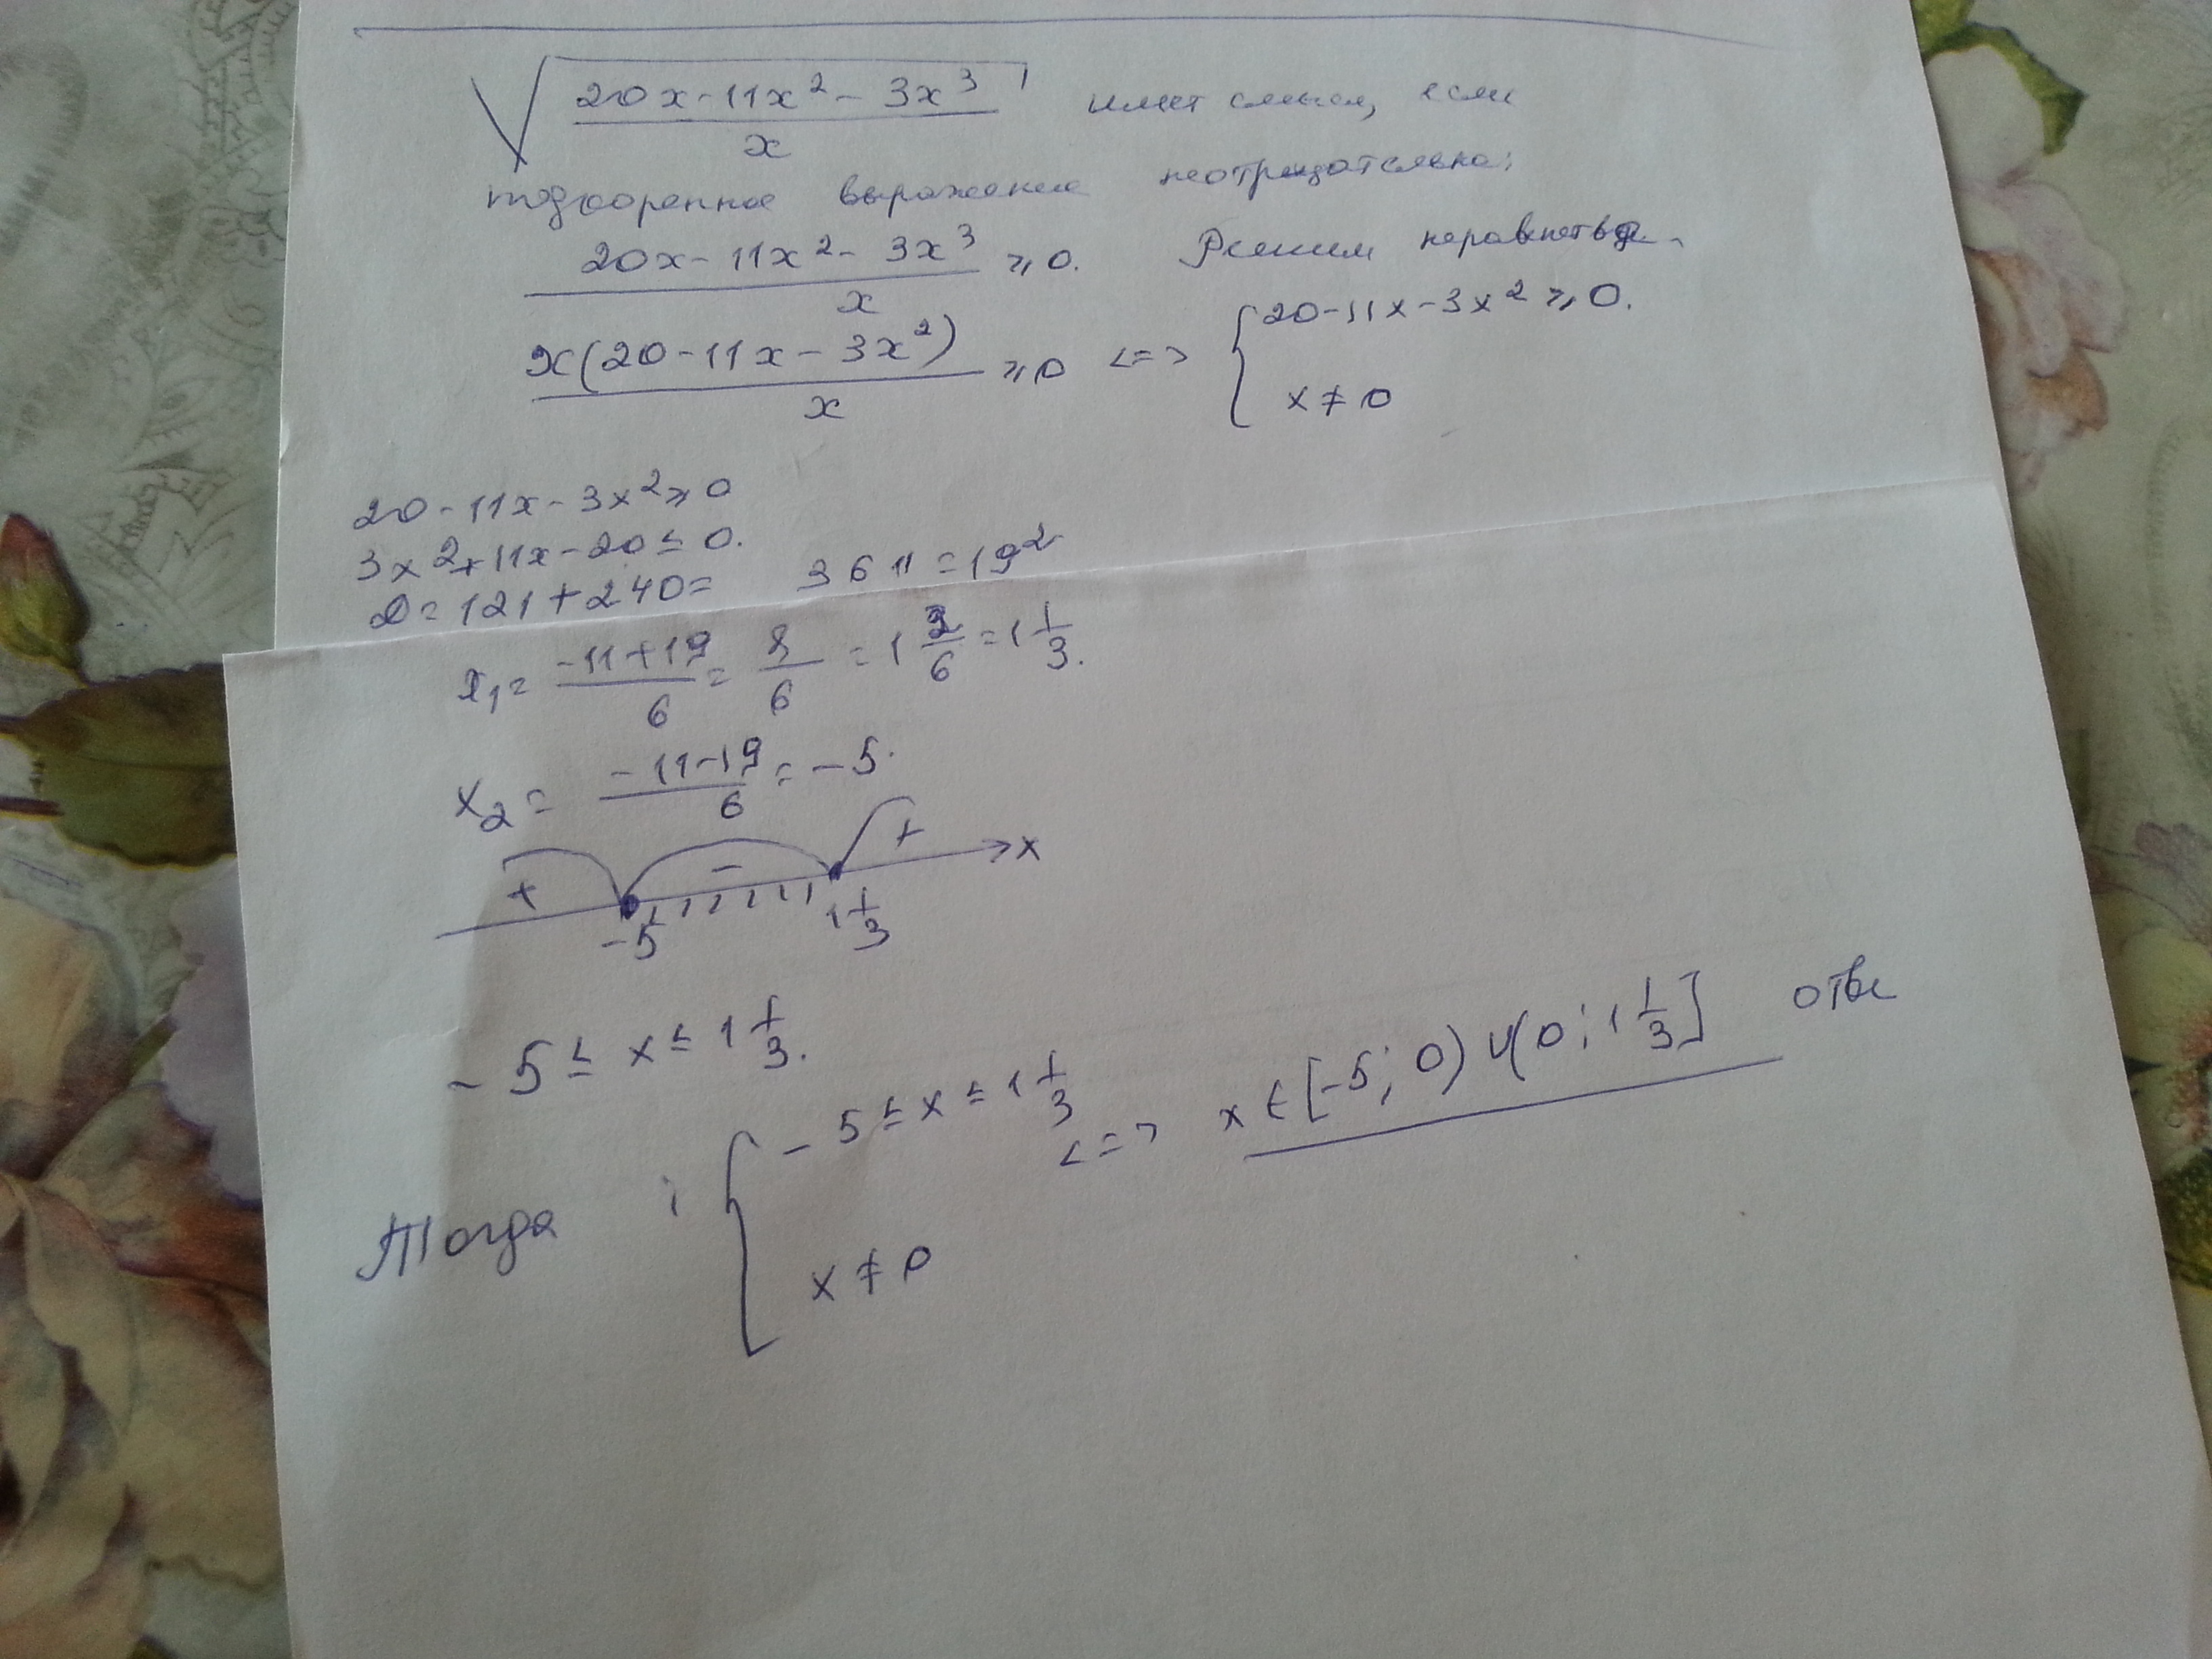 √((20x-11x²-3x³)/x) имеет смысл, если
подкоренное выражение неотрицательно:
(20x-11x²-3x³)/x ⩾ 0. Решим неравенство.
x(20-11x-3x²)/x ⩾ 0 <=> { 20-11x-3x² ⩾ 0.
x ≠ 0
20-11x-3x² ⩾ 0
3x²+11x-20 ≤ 0.
D = 121+240 = 361 = 19²
x₁ = (-11+19)/6 = 8/6 = 1 2/6 = 1 1/3.
x₂ = (-11-19)/6 = -5.
+ - + x
-5 1 1/3
-5 ≤ x ≤ 1 1/3.
Тогда : { -5 ≤ x ≤ 1 1/3 <=> x ∈ [-5; 0) ∪ (0; 1 1/3]
x ≠ 0